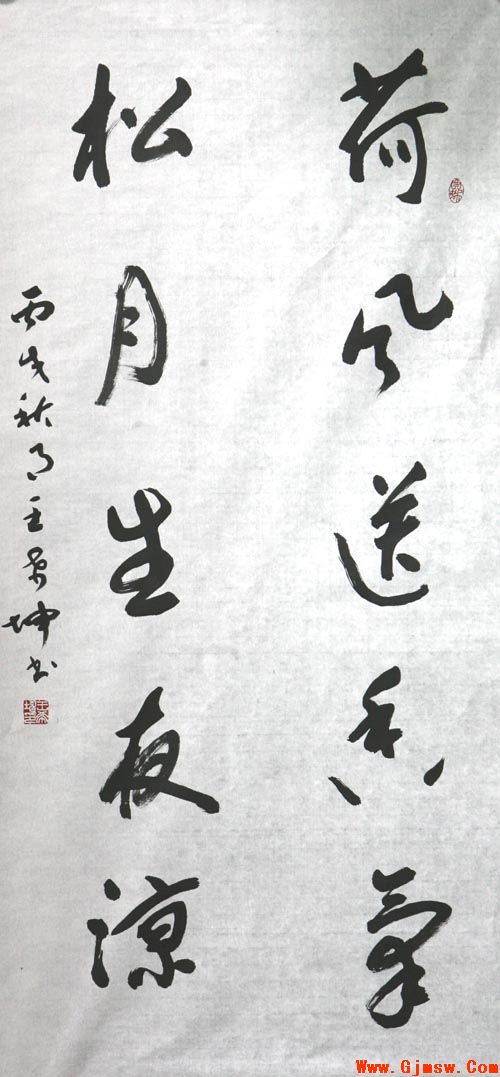 荷风送香氣
松月生夜凉
丙戌秋月王景坤书
Www.Gjmsw.Com